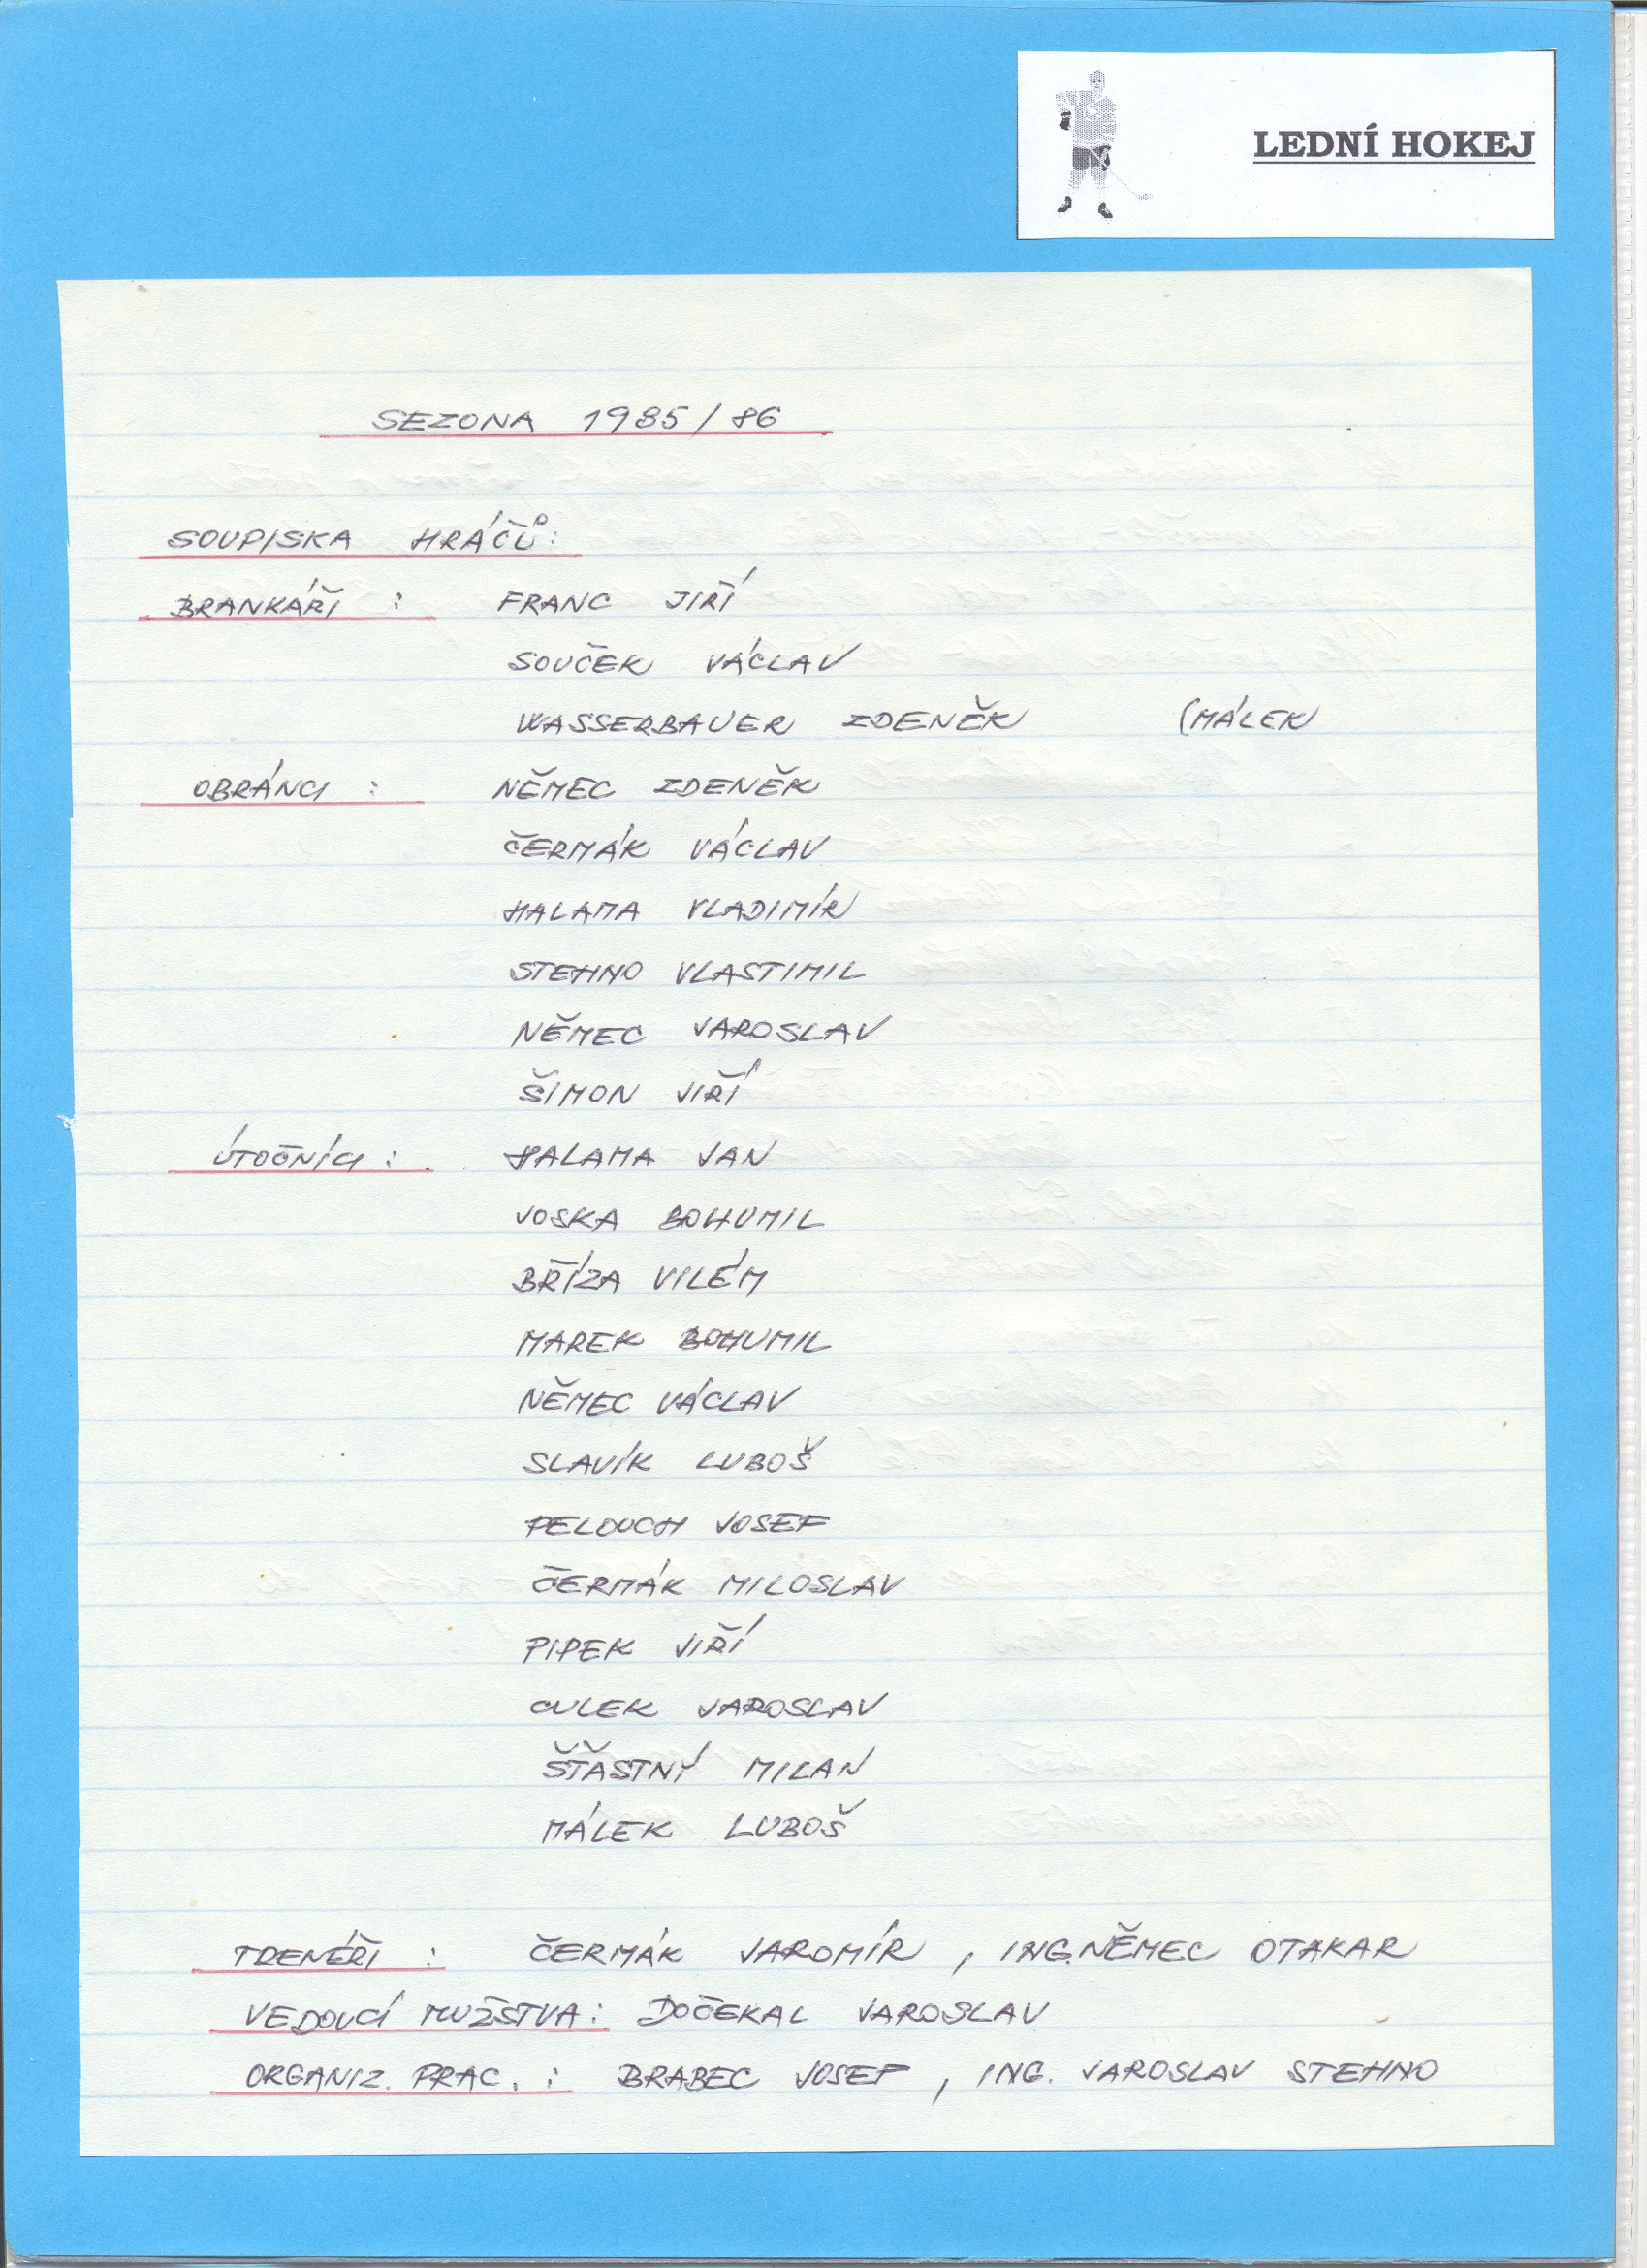 LEDNÍ HOKEJ
SEZONA 1985/86
SOUPISKA HRÁČŮ:
BRANKÁŘI : FRANC JIŘÍ
SOUČEK VÁCLAV
WASSERBAUER ZDENĚK (MÁLEK
OBRÁNCI : NĚMEC ZDENĚK
ČERMÁK VÁCLAV
HALAMA VLADIMÍR
STEHNO VLASTIMIL
NĚMEC JAROSLAV
ŠIMON JIŘÍ
ÚTOČNÍCI : HALAMA JAN
VOSKA BOHUMIL
BŘÍZA VILÉM
MAREK BOHUMIL
NĚMEC VÁCLAV
SLAVÍK LUBOŠ
PELOUCH JOSEF
ČERMÁK MILOSLAV
PIPEK JIŘÍ
CULEK JAROSLAV
ŠŤASTNÝ MILAN
MÁLEK LUBOŠ
TRENÉŘI : ČERMÁK JAROMÍR , ING.NĚMEC OTAKAR
VEDOUCÍ MUŽSTVA : DOČEKAL JAROSLAV
ORGANIZ. PRAC. : BRABEC JOSEF , ING. JAROSLAV STEHNO